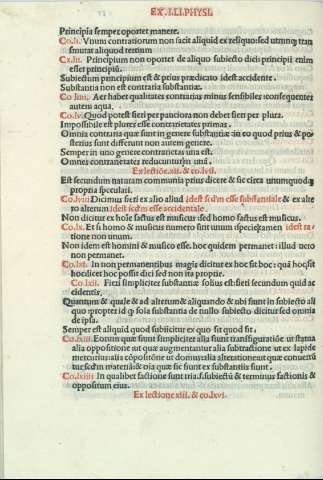 EX .I.LI.PHYSI.
Principia semper oportet manere.
Co.li. Vnum contrariorum non facit aliquid ex reliquo: sed utrunque transmutat aliquid tertium
Co.lii. Principium non oportet de aliquo subiecto dici: principii enim
esset principium.
Subiectum principium est & prius prædicato idest accidente.
Substantia non est contraria substantiæ.
Co liiii. Aer habet qualitates contrarias minus sensibiles: consequenter
autem aqua.
Co.lv. Quod potest fieri per pauciora non debet fieri per plura.
Impossibile est plures esse contrarietates primas.
Omnia contraria quæ sunt in genere substantiæ in eo quod prius & posterius sunt differunt non autem genere.
Semper in uno genere contrarietas una est.
Omnes contrarietates reducuntur in unā.
Ex lectiōe.xii. & co.lvii.
Est secundum naturam communia prius dicere & sic circa unumquodque
propria speculari.
Co.lviii Dicimus fieri ex alio aliud idest scd'm esse substantiale & ex altero alterum idest scd'm esse accidentale.
Non dicitur ex hoīe factus est musicus: sed homo factus est musicus.
Co.lx. Et si homo & musicus numero sint unum specie tamen idest ratione non unum.
Non idem est homini & musico esse. hoc quidem permanet: illud uero
non permanet.
Co.lxi. In non permanentibus magis dicitur ex hoc fit hoc: quā hoc fit
hoc licet hoc possit dici sed non ita proprie.
Co.lxii. Fieri simpliciter substantiæ solius est: fieri secundum quid accidentis.
Quantum & quale & ad alterum & aliquando & ubi fiunt in subiecto aliquo: propter id q̄ sola substantia de nullo subiecto dicitur sed omnia
de ipsa.
Semper est aliquid quod subiicitur ex quo fit quod fit.
Co.lxiii. Eorum quæ fiunt simpliciter alia fiunt transfiguratiōe ut statua
alia oppositione ut quæ augmentantur alia subtractione ut ex lapide
mercurius alia cōpositiōe ut domus alia alteratione ut quæ conuertūtur scd'm materiā & oīa quæ sic fiunt ex substantiis fiunt.
Co.lxiiii In qualibet factione sunt tria.s. subiectū & terminus factionis &
oppositum eius.
Ex lectione xiii. & co.lxvi.